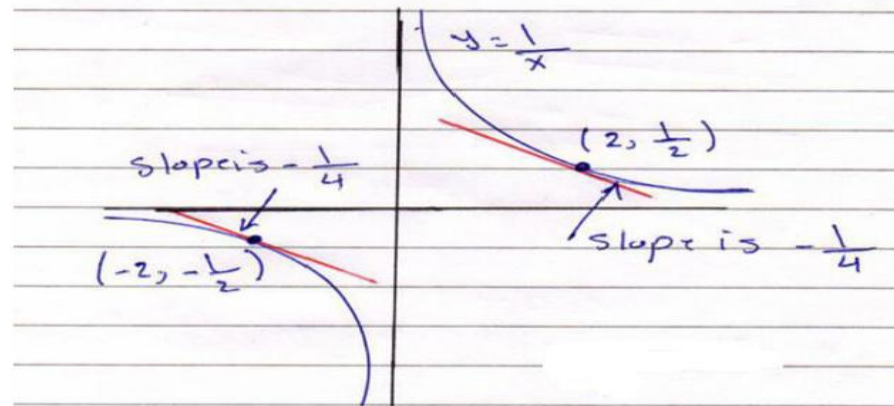 y = 1/x
(2, 1/2)
slope is - 1/4
slope is - 1/4
(-2, -1/2)